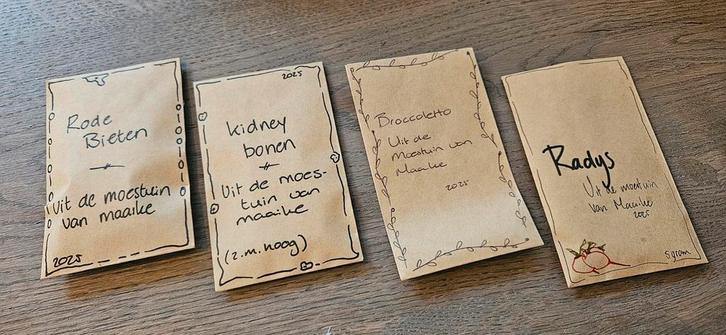 Rode
Bieten
Uit de moestuin
van maaike
2025
2025
kidney
bonen
Uit de moes-
tuin van
maaike
(2.m. hoog)
Broccoletto
Uit de
moestuin van
Maaike
2025
Radys
Uit de moestuin
van Maaike
2025
5 gram